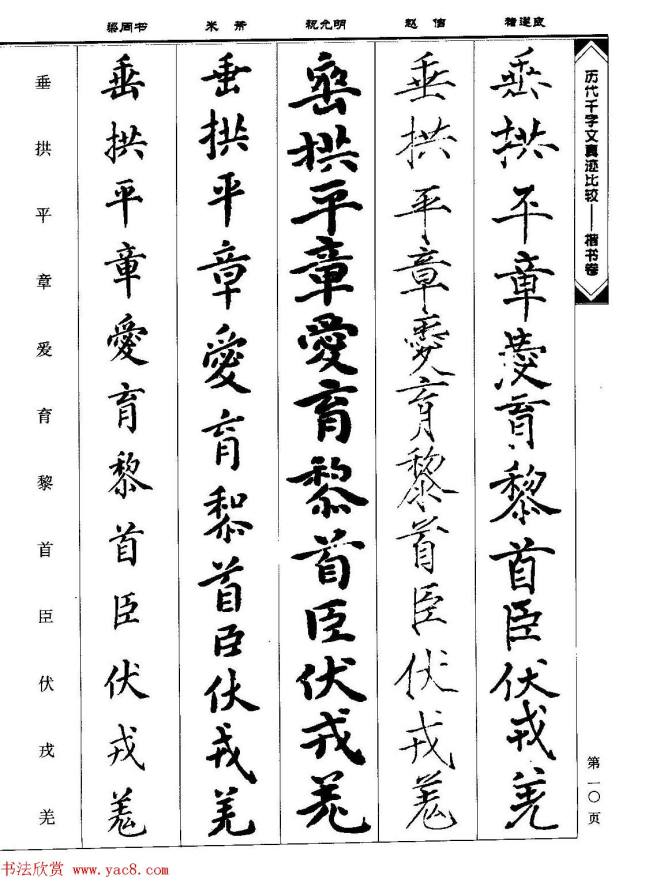 历代千字文真迹比较——楷书卷
第一〇页
褚遂良
垂拱平章愛育黎首臣伏戎羌
赵佶
垂拱平章愛育黎首臣伏戎羌
祝允明
垂拱平章愛育黎首臣伏戎羌
米芾
垂拱平章愛育黎首臣伏戎羌
梁同书
垂拱平章愛育黎首臣伏戎羌
垂拱平章爱育黎首臣伏戎羌
书法欣赏 www.yac8.com